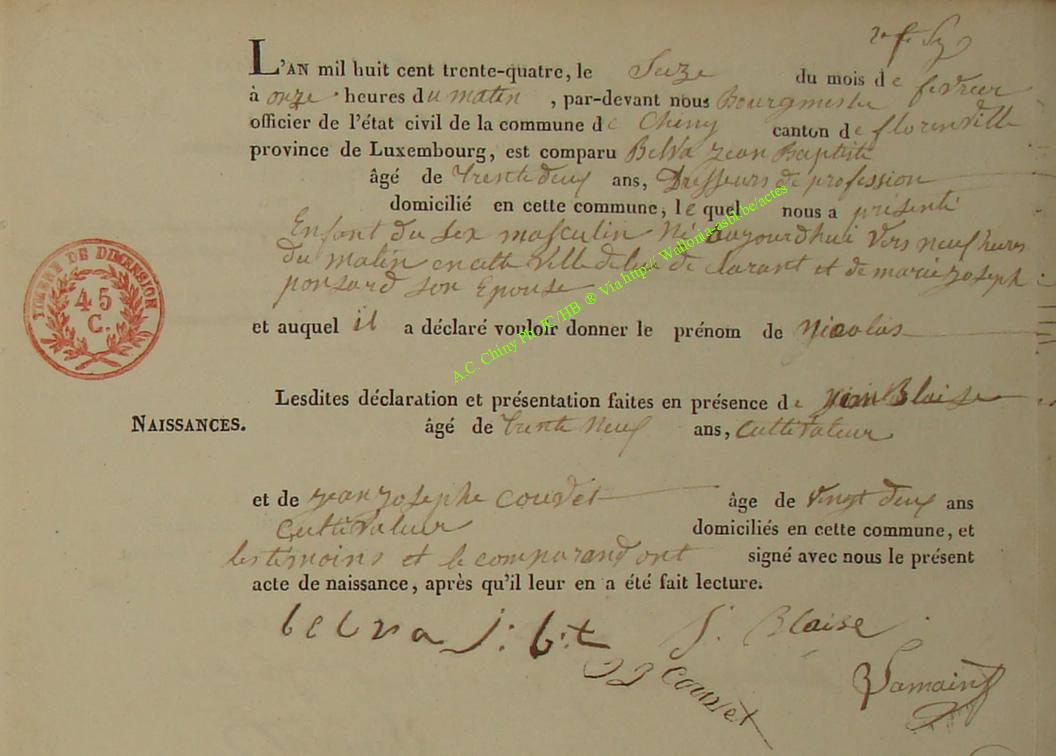 L'AN mil huit cent trente-quatre, le Seize du mois de fevrier
à onze heures du matin, par-devant nous Bourgmestre
officier de l'état civil de la commune de Chiny canton de florenville
province de Luxembourg, est comparu Belva jean Baptiste
âgé de trente deux ans, Dresseurs de profession
domicilié en cette commune, le quel nous a présenté
Enfant du sex masculin Né aujourdhui vers neuf heures
du matin en cette ville de lui de clarant et de marie joseph
ponsard son Epouse
et auquel il a déclaré vouloir donner le prénom de Nicolas
Lesdites déclaration et présentation faites en présence de jean Blaise
NAISSANCES. âgé de trente Neuf ans, Cultivateur
et de jean josephe couvet âge de vingt deux ans
Cultivateur domiciliés en cette commune, et
les témoins et le comparand ont signé avec nous le présent
acte de naissance, après qu'il leur en a été fait lecture.
belva j: b:t J. Blaise
JJ couvet Lamain
TIMBRE DE DIMENSION
45
C.
A.C. Chiny PhJC /HB ® Via http:// Wallonia-asbl.be/actes